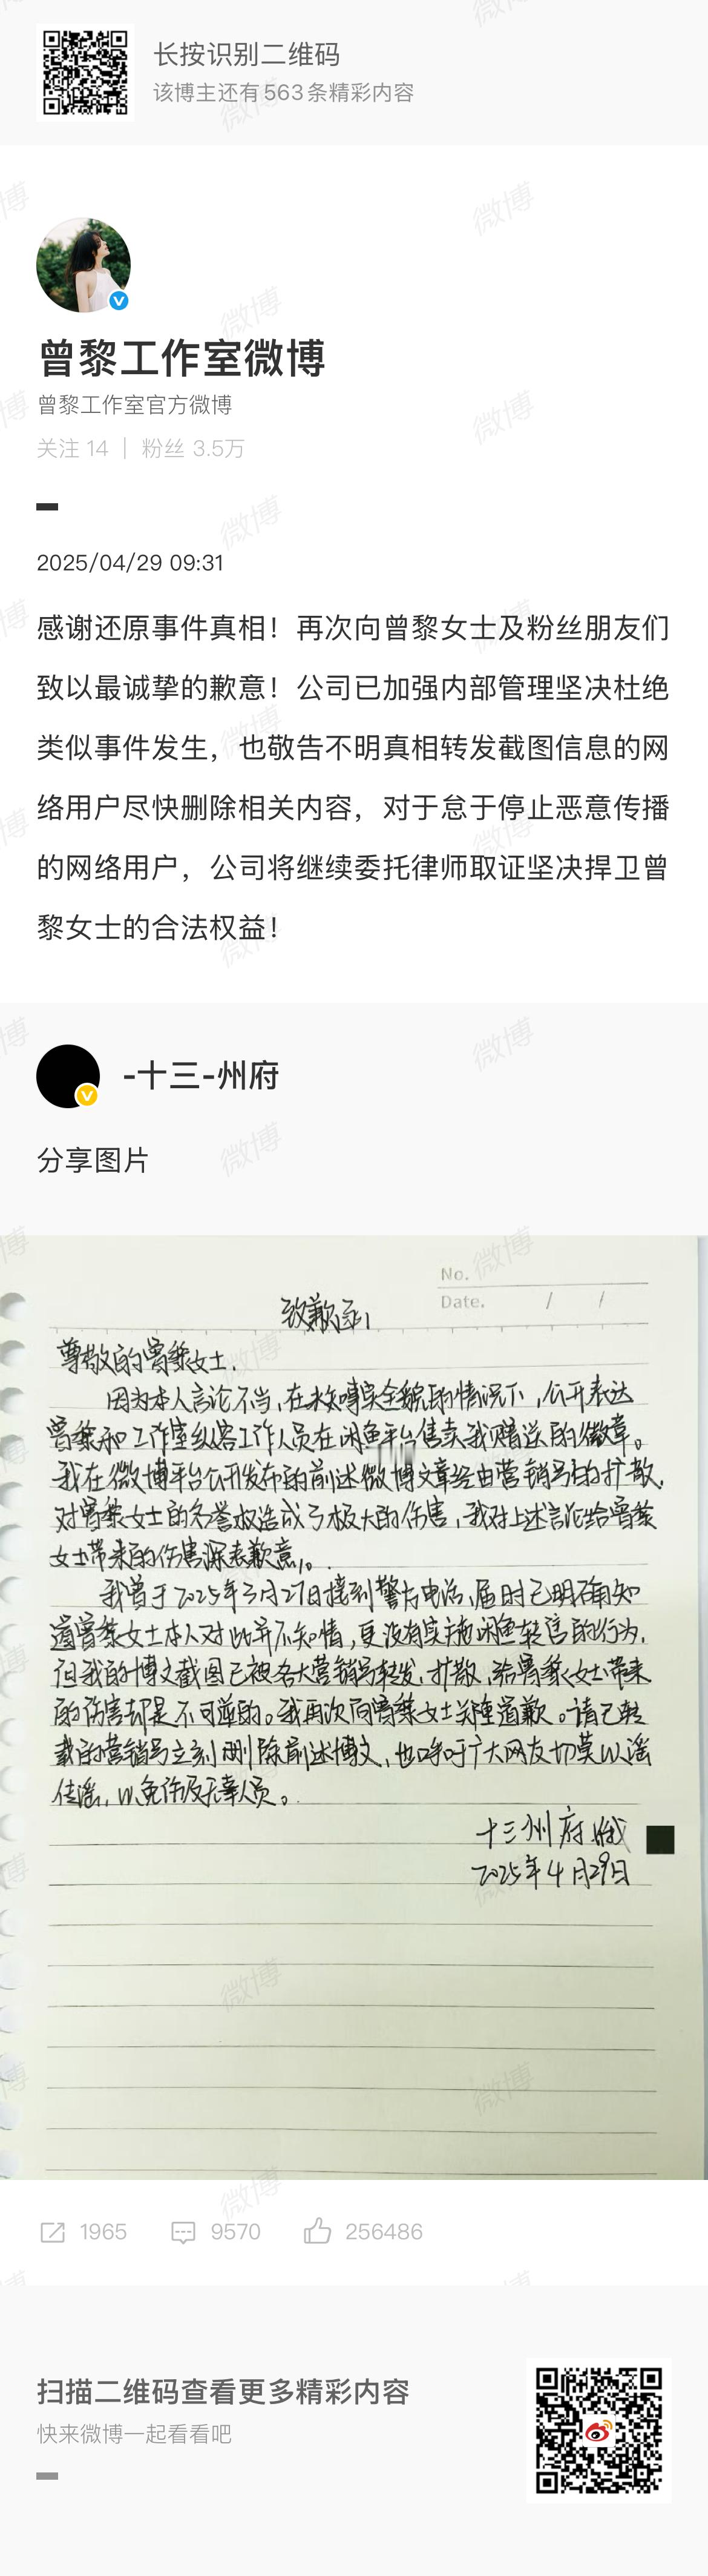 长按识别二维码
该博主还有563条精彩内容
曾黎工作室微博
曾黎工作室官方微博
关注 14 | 粉丝 3.5万
2025/04/29 09:31
感谢还原事件真相！再次向曾黎女士及粉丝朋友们
致以最诚挚的歉意！公司已加强内部管理坚决杜绝
类似事件发生，也敬告不明真相转发截图信息的网
络用户尽快删除相关内容，对于怠于停止恶意传播
的网络用户，公司将继续委托律师取证坚决捍卫曾
黎女士的合法权益！
-十三-州府
分享图片
No.
Date. / /
致歉函
尊敬的曾黎女士.
因为本人言论不当,在未知事实全貌的情况下,公开表达
曾黎和工作室纵容工作人员在闲鱼平台售卖我赠送的徽章。
我在微博平台公开发布的前述微博文章经由营销号的扩散,
对曾黎女士的名誉权造成了极大的伤害,我对上述言论给曾黎
女士带来的伤害深表歉意。
我曾于2025年3月27日接到警方电话,届时已明确知
道曾黎女士本人对此并不知情,更没有实施闲鱼转售的行为,
但我的博文截图已被各大营销号转发,扩散,给曾黎女士带来
的伤害却是不可逆的。我再次向曾黎女士郑重道歉。请已转
载的营销号立刻删除前述博文,也呼吁广大网友切莫以谣
传谣,以免伤及无辜人员。
十三州府
2025年4月29日
1965 9570 256486
扫描二维码查看更多精彩内容
快来微博一起看看吧
微博